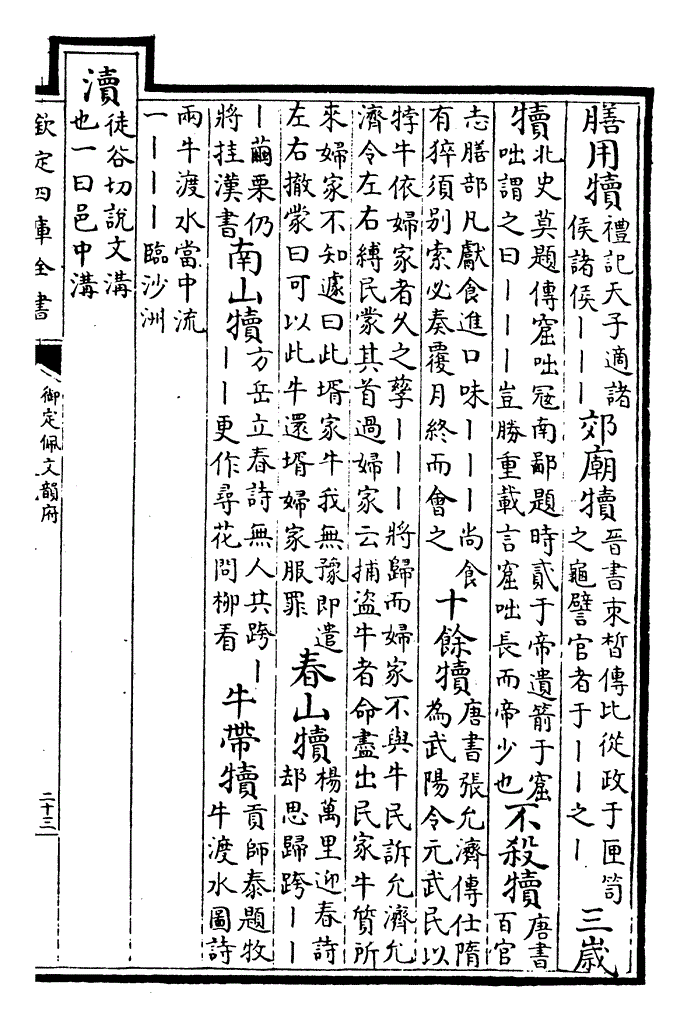 膳用犢禮記天子適諸侯諸侯｜｜｜郊廟犢晉書束晳傳比從政于匣笥之龜譬官者于｜｜之｜三歲
犢北史莫題傳窟咄寇南鄙題時貳于帝遺箭于窟咄謂之曰｜｜｜豈勝重載言窟咄長而帝少也不殺犢唐書百官
志膳部凡獻食進口味｜｜｜尚食有猝須别索必奏覆月終而會之十餘犢唐書張允濟傳仕隋為武陽令元武民以
牸牛依婦家者久之孳｜｜｜將歸而婦家不與牛民訴允濟允濟令左右縛民蒙其首過婦家云捕盜牛者命盡出民家牛質所
來婦家不知遽曰此壻家牛我無豫即遣左右撤蒙曰可以此牛還壻婦家服罪春山犢楊萬里迎春詩却思歸跨｜｜
｜繭栗仍將挂漢書南山犢方岳立春詩無人共跨｜｜｜更作尋花問柳看牛帶犢貢師泰題牧牛渡水圖詩
兩牛渡水當中流一｜｜｜臨沙洲
瀆徒谷切說文溝也一曰邑中溝
欽定四庫全書
御定佩文韻府
二十三